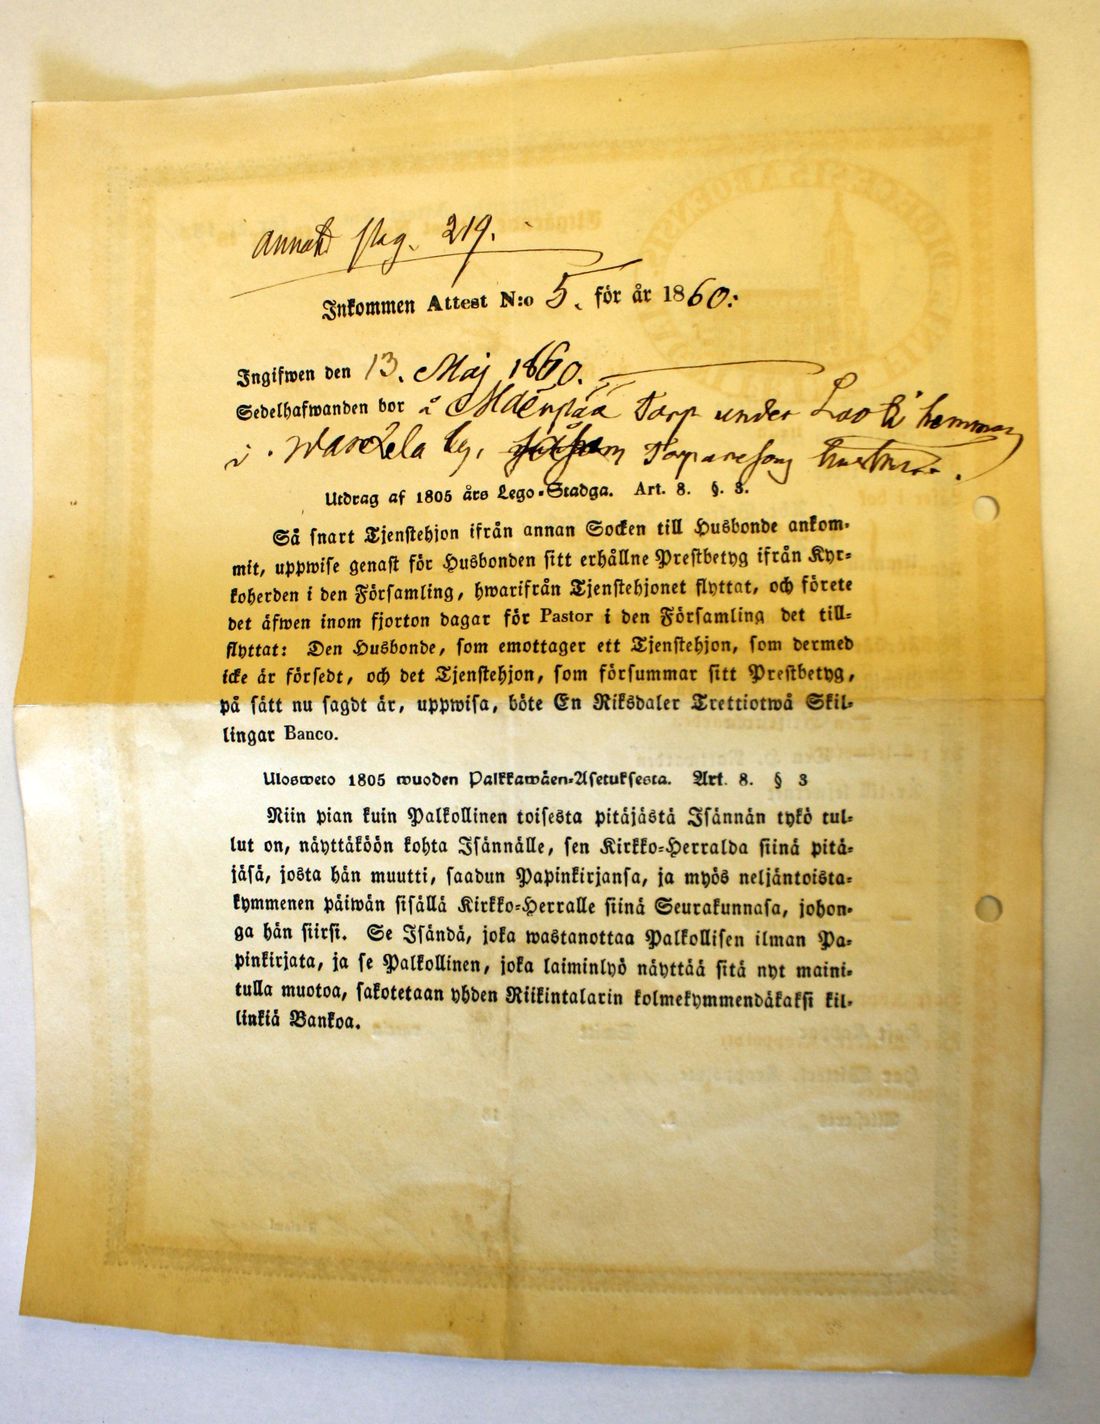 pag. 219.
Inkommen Attest N:o 5. för år 1860:
Ingifwen den 13. Maj 1860.
Sedelhafwanden bor å Torp under hemman
i by,
Utdrag af 1805 års Lego-Stadga. Art. 8. §. 3.
Så snart Tjenstehjon ifrån annan Socken till Husbonde ankom-
mit, uppwise genast för Husbonden sitt erhållne Prestbetyg ifrån Kyr-
koherden i den Församling, hwarifrån Tjenstehjonet flyttat, och förete
det äfwen inom fjorton dagar för Pastor i den Församling det till-
flyttat: Den Husbonde, som emottager ett Tjenstehjon, som dermed
icke är försedt, och det Tjenstehjon, som försummar sitt Prestbetyg,
på sätt nu sagdt är, uppwisa, böte En Riksdaler Trettiotwå Skil-
lingar Banco.
Ulosweto 1805 wuoden Palkkawäen-Asetuksesta. Art. 8. § 3
Niin pian kuin Palkollinen toisesta pitäjästä Isännän tykö tul-
lut on, näyttäköön kohta Isännälle, sen Kirkko-Herralda siinä pitä-
jäsä, josta hän muutti, saadun Papinkirjansa, ja myös neljäntoista-
kymmenen päiwän sisällä Kirkko-Herralle siinä Seurakunnasa, johon-
ga hän siirsi. Se Isändä, joka wastanottaa Palkollisen ilman Pa-
pinkirjata, ja se Palkollinen, joka laiminlyö näyttää sitä nyt maini-
tulla muotoa, sakotetaan yhden Riikintalarin kolmekymmendäkaksi kil-
linkiä Bankoa.